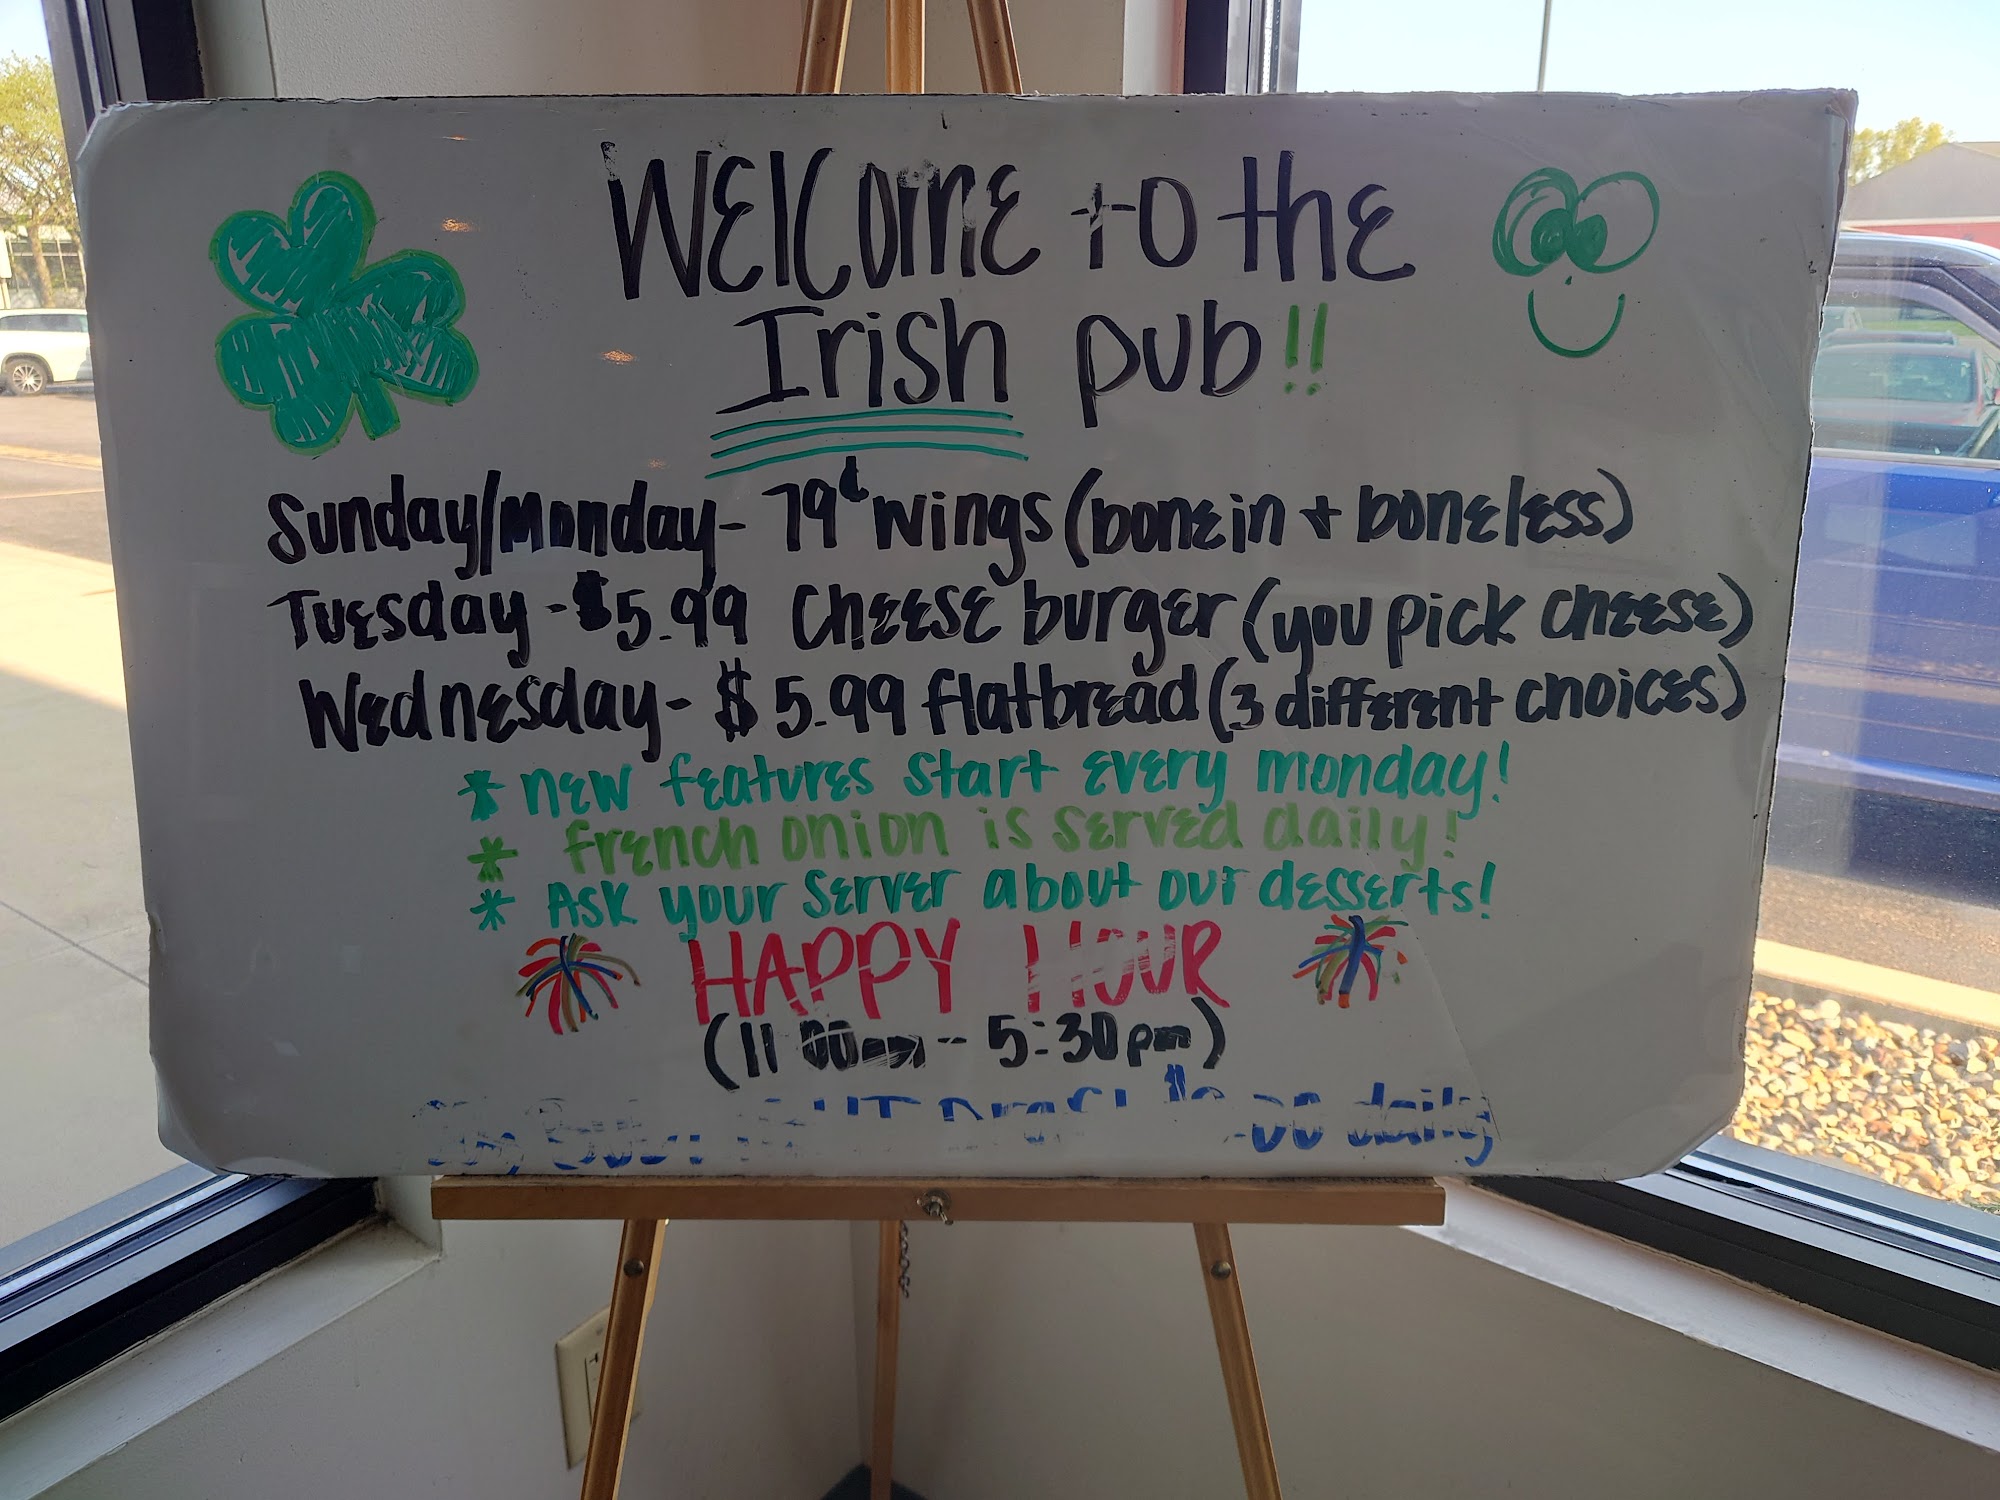 Welcome to the
Irish pub!!
Sunday/Monday - 79¢ wings (bonein + boneless)
Tuesday - $5.99 cheese burger (you pick cheese)
Wednesday - $5.99 flatbread (3 different choices)
* new features start every monday!
* french onion is served daily!
* Ask your server about our desserts!
HAPPY HOUR
(11 00am - 5:30pm)
daily